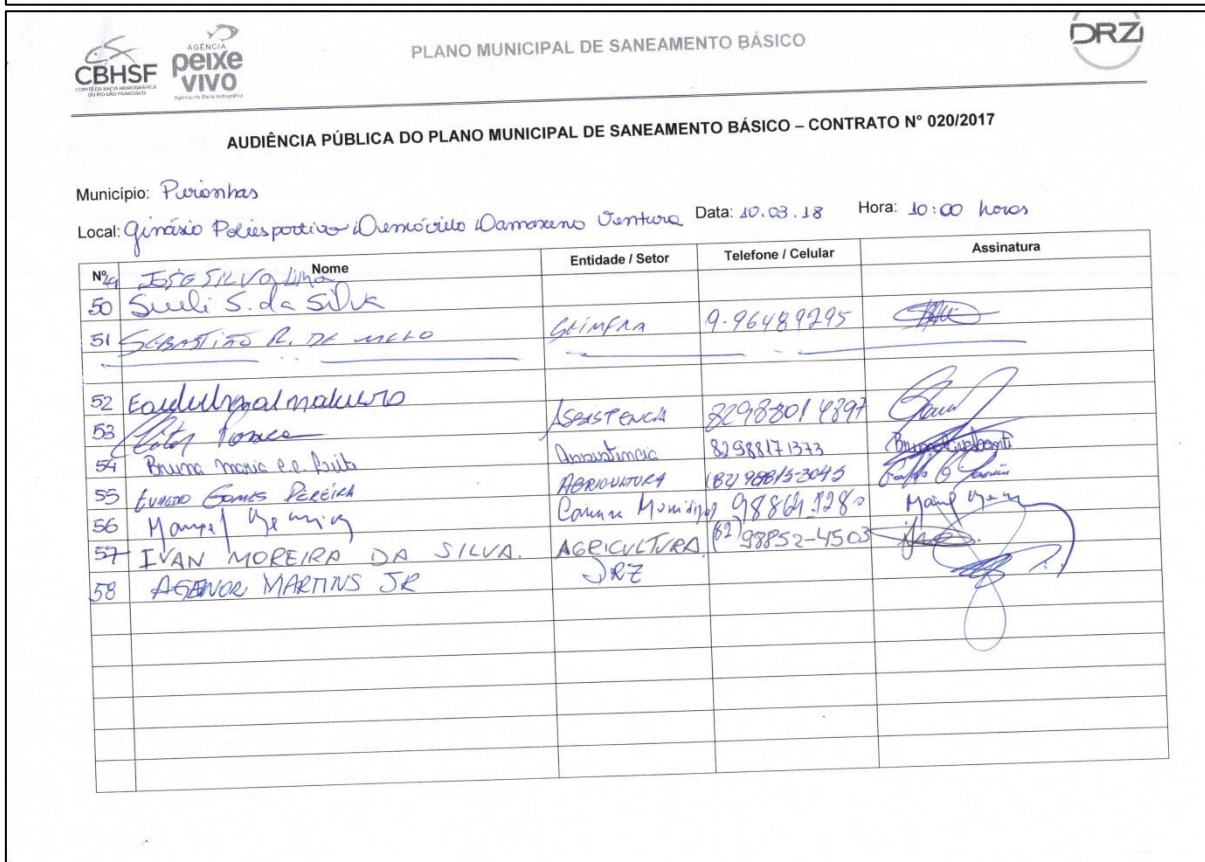 CBHSF
COMITÊ DA BACIA HIDROGRÁFICA
DO RIO SÃO FRANCISCO
AGÊNCIA
peixe
vivo
PLANO MUNICIPAL DE SANEAMENTO BÁSICO
DRZ
AUDIÊNCIA PÚBLICA DO PLANO MUNICIPAL DE SANEAMENTO BÁSICO – CONTRATO N° 020/2017
Município: Piranhas
Local: Ginásio Poliesportivo Damasceno Ventura Data: 10.03.18 Hora: 10:00 horas
Nº Nome Entidade / Setor Telefone / Celular Assinatura
49 JOSÉ SILVA LIMA
50 Sueli S. da Silva
51 SEBASTIÃO R. DE MELO 9-96489295
52
53 ASSISTENCIA
54 Bruna Maria Assistência 82988171373 Bruna
55 EVALDO GOMES PEREIRA AGRICULTURA (82) 98815-3045
56 Manoel Camara Municipal Manoel
57 IVAN MOREIRA DA SILVA. AGRICULTURA (82) 98852-4503
58 AGENOR MARTINS JR DRZ